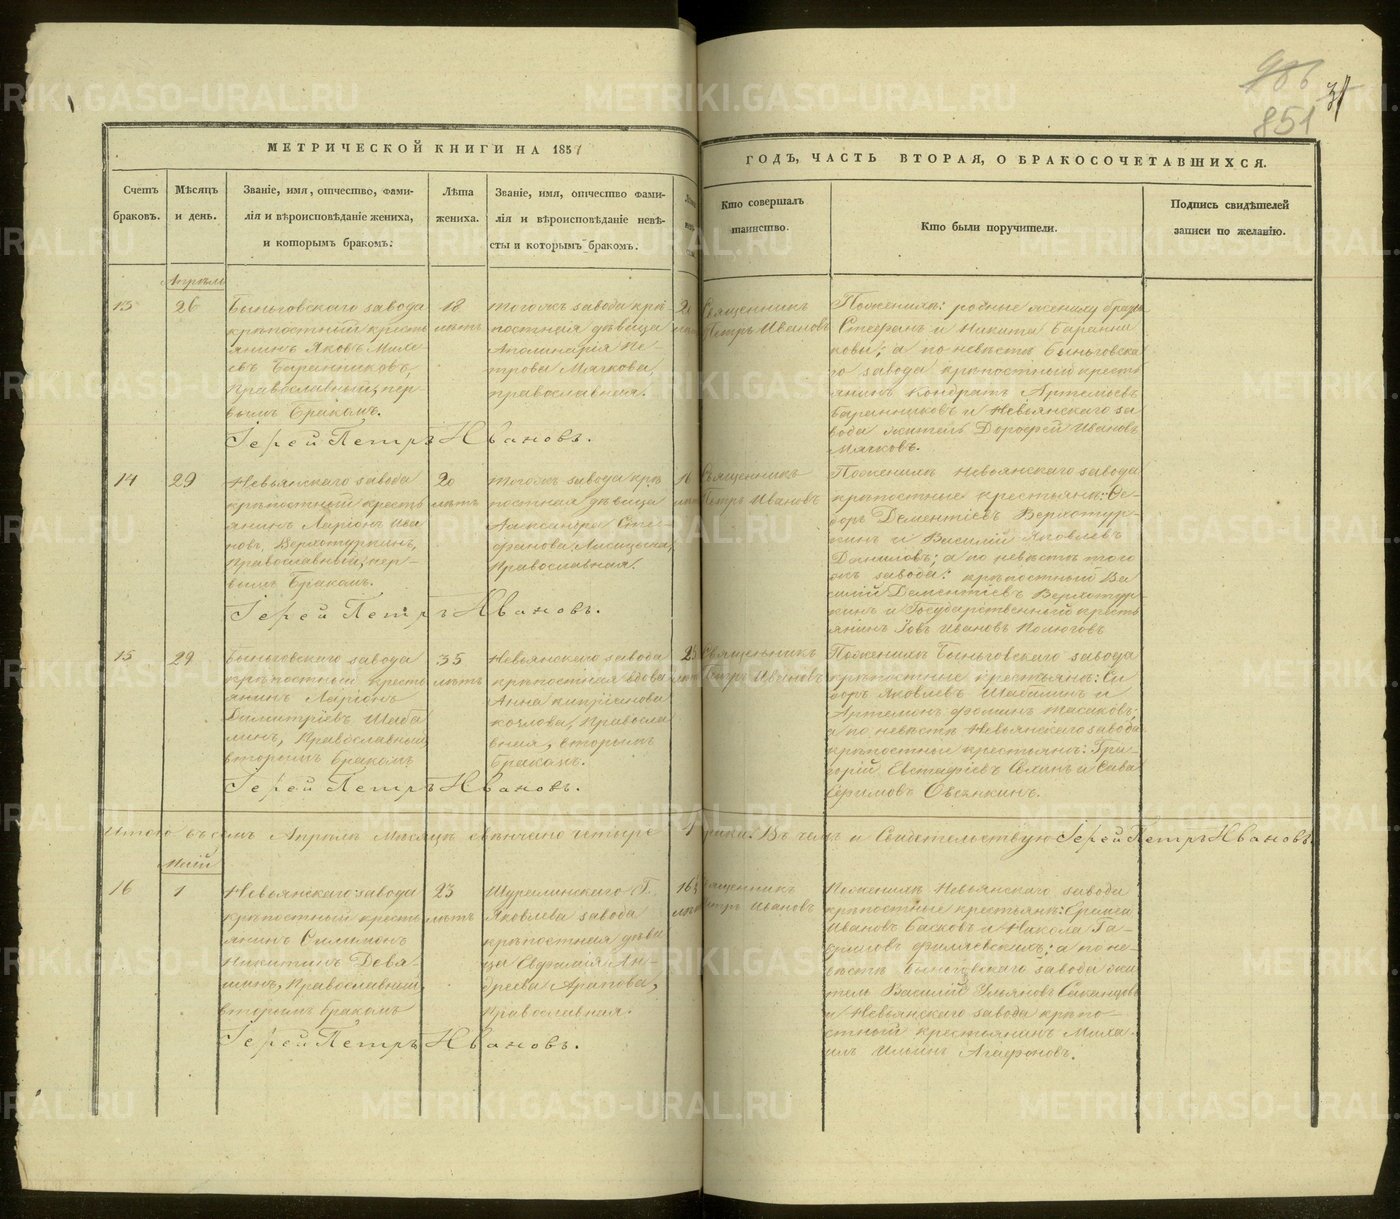 986
851
МЕТРИЧЕСКОЙ КНИГИ НА 1857
ГОДЪ, ЧАСТЬ ВТОРАЯ, О БРАКОСОЧЕТАВШИХСЯ.
Счетъ
браковъ.
Мѣсяцъ
и день.
Званіе, имя, отчество, фами-
лія и вѣроисповѣданіе жениха,
и которымъ бракомъ.
Лѣта
жениха.
Званіе, имя, отчество фами-
лія и вѣроисповѣданіе невѣ-
сты и которымъ бракомъ.
Кто совершалъ
таинство.
Кто были поручители.
Подпись свидѣтелей
записи по желанію.
Апрѣль
13
26
Быньговскаго завода
крѣпостный кресть
янинъ Яковъ
Баранниковъ,
Православный, пер
вымъ бракомъ.
18
лѣтъ
тогожъ завода крѣ
постная дѣвица
Аполинарія Пе-
трова Мягкова,
православная.
Священникъ
Петръ Ивановъ
По женихѣ: родные жениху братья
Стефанъ и Никита Баранни
ковы; а по невѣстѣ Быньговска
го завода крѣпостный кресть
янинъ Кондратъ Артемьевъ
Баранниковъ и Невьянскаго за
вода житель Дорофей Ивановъ
Мягковъ.
Іерей Петръ Ивановъ.
14
29
Невьянскаго завода
крѣпостный кресть
янинъ Ларіонъ Ива
новъ, Верхотуркинъ,
Православный, пер-
вымъ бракомъ.
20
лѣтъ
тогожъ завода крѣ
постная дѣвица
Александра Сте
фанова Лисицына,
Православная.
16
Священникъ
Петръ Ивановъ
По женихѣ Невьянскаго завода
крѣпостные крестьяне: Ѳе-
доръ Дементіевъ Верхотур-
кинъ и Василій Яковлевъ
Даниловъ; а по невѣстѣ того
жъ завода: крѣпостный Ва
силій Дементіевъ Верхотур-
кинъ и Государственный кресть
янинъ Іовъ Ивановъ Полюговъ
Іерей Петръ Ивановъ.
15
29
Быньговскаго завода
крѣпостный кресть
янинъ Ларіонъ
Димитріевъ Шаба
линъ, Православный,
вторымъ бракомъ
35
лѣтъ
Невьянскаго завода
крѣпостная вдова
Анна Кипріянова
Козлова, Правосла
вная, вторымъ
бракомъ.
25
Священникъ
Петръ Ивановъ
По женихѣ Быньговскаго завода
крѣпостные крестьяне: Си
доръ Яковлевъ Шабалинъ и
Артемонъ Ѳоминъ Масаковъ;
а по невѣстѣ Невьянскаго завода
крѣпостные крестьяне: Гри-
горій Евстафіевъ и Сава
Ефимовъ Овсянкинъ.
Іерей Петръ Ивановъ.
Итого въ семъ Апрѣлѣ Мѣсяцѣ вѣнчано четыре 4 брака. Въ чемъ и Свидетельствую Іерей Петръ Ивановъ
Маій
16
1
Невьянскаго завода
крѣпостный кресть
янинъ Симеонъ
Никитинъ Девя-
шинъ, Православный,
вторымъ бракомъ
23
лѣтъ
Шуралинскаго Г.
Яковлева завода
крѣпостная дѣви
ца Ан-
дреева Арапова,
православная.
Священникъ
Петръ Ивановъ
По женихѣ Невьянскаго завода
крѣпостные крестьяне: Еремей
Ивановъ Басковъ и Никола Га-
вриловъ; а по не-
вѣстѣ Быньговскаго завода жи
тель Василій Ульяновъ
и Невьянскаго завода крѣпо-
стный крестьянинъ Миха-
илъ Ильинъ Агафоновъ.
Іерей Петръ Ивановъ.
METRIKI.GASO-URAL.RU